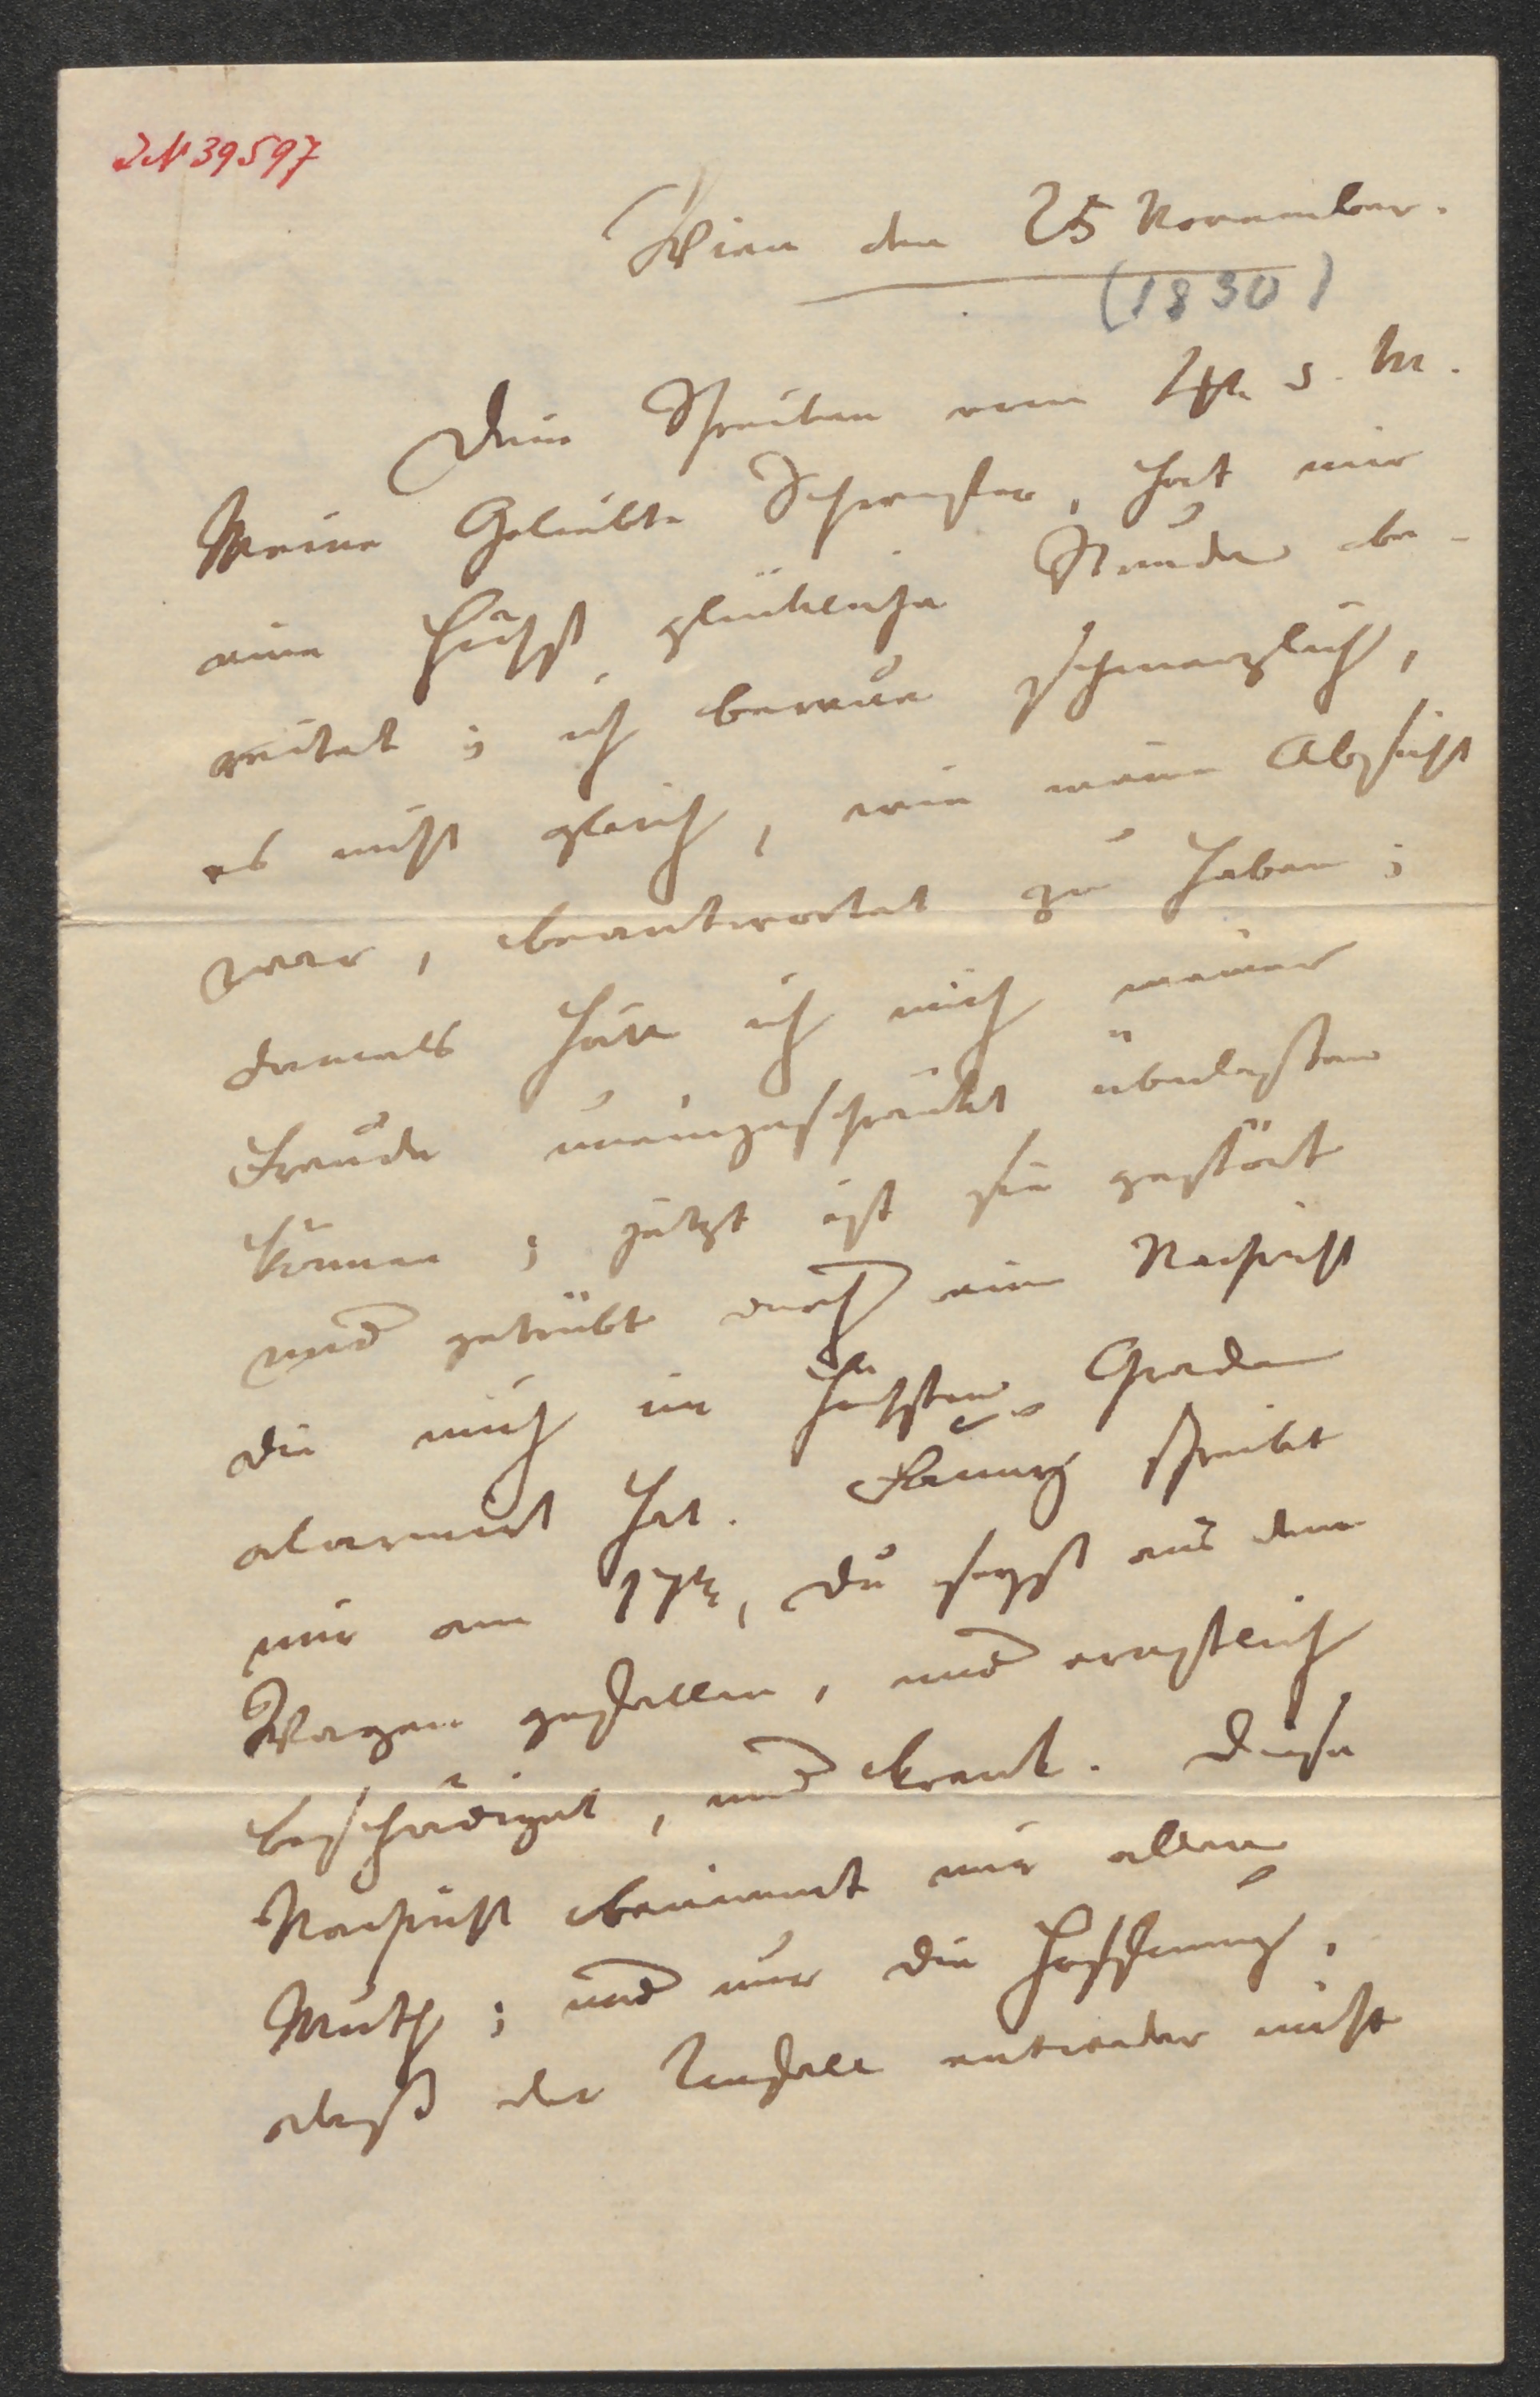 JN 39597
Wien den 25 November.
(1830)
Dein Schreiben vom 4t. d. M.
Meine Geliebte Schwester, hat mir
eine höchst glückliche Stunde be-
reitet; ich bereue schmerzlich,
es nicht gleich, wie meine Absicht
war, beantwortet zu haben;
damals hätte ich mich meiner
Freude uneingeschränkt überlassen
können; jetzt ist sie gestört
und getrübt durch eine Nachricht
die mich im höchsten Grade
alarmirt hat. Fanny schreibt
mir am 17t, du seyst aus dem
Wagen gefallen, und ernstlich
beschädiget, und krank. Diese
Nachricht benimmt mir allen
Muth; und nur die Hoffnung,
daß der Unfall entweder nicht